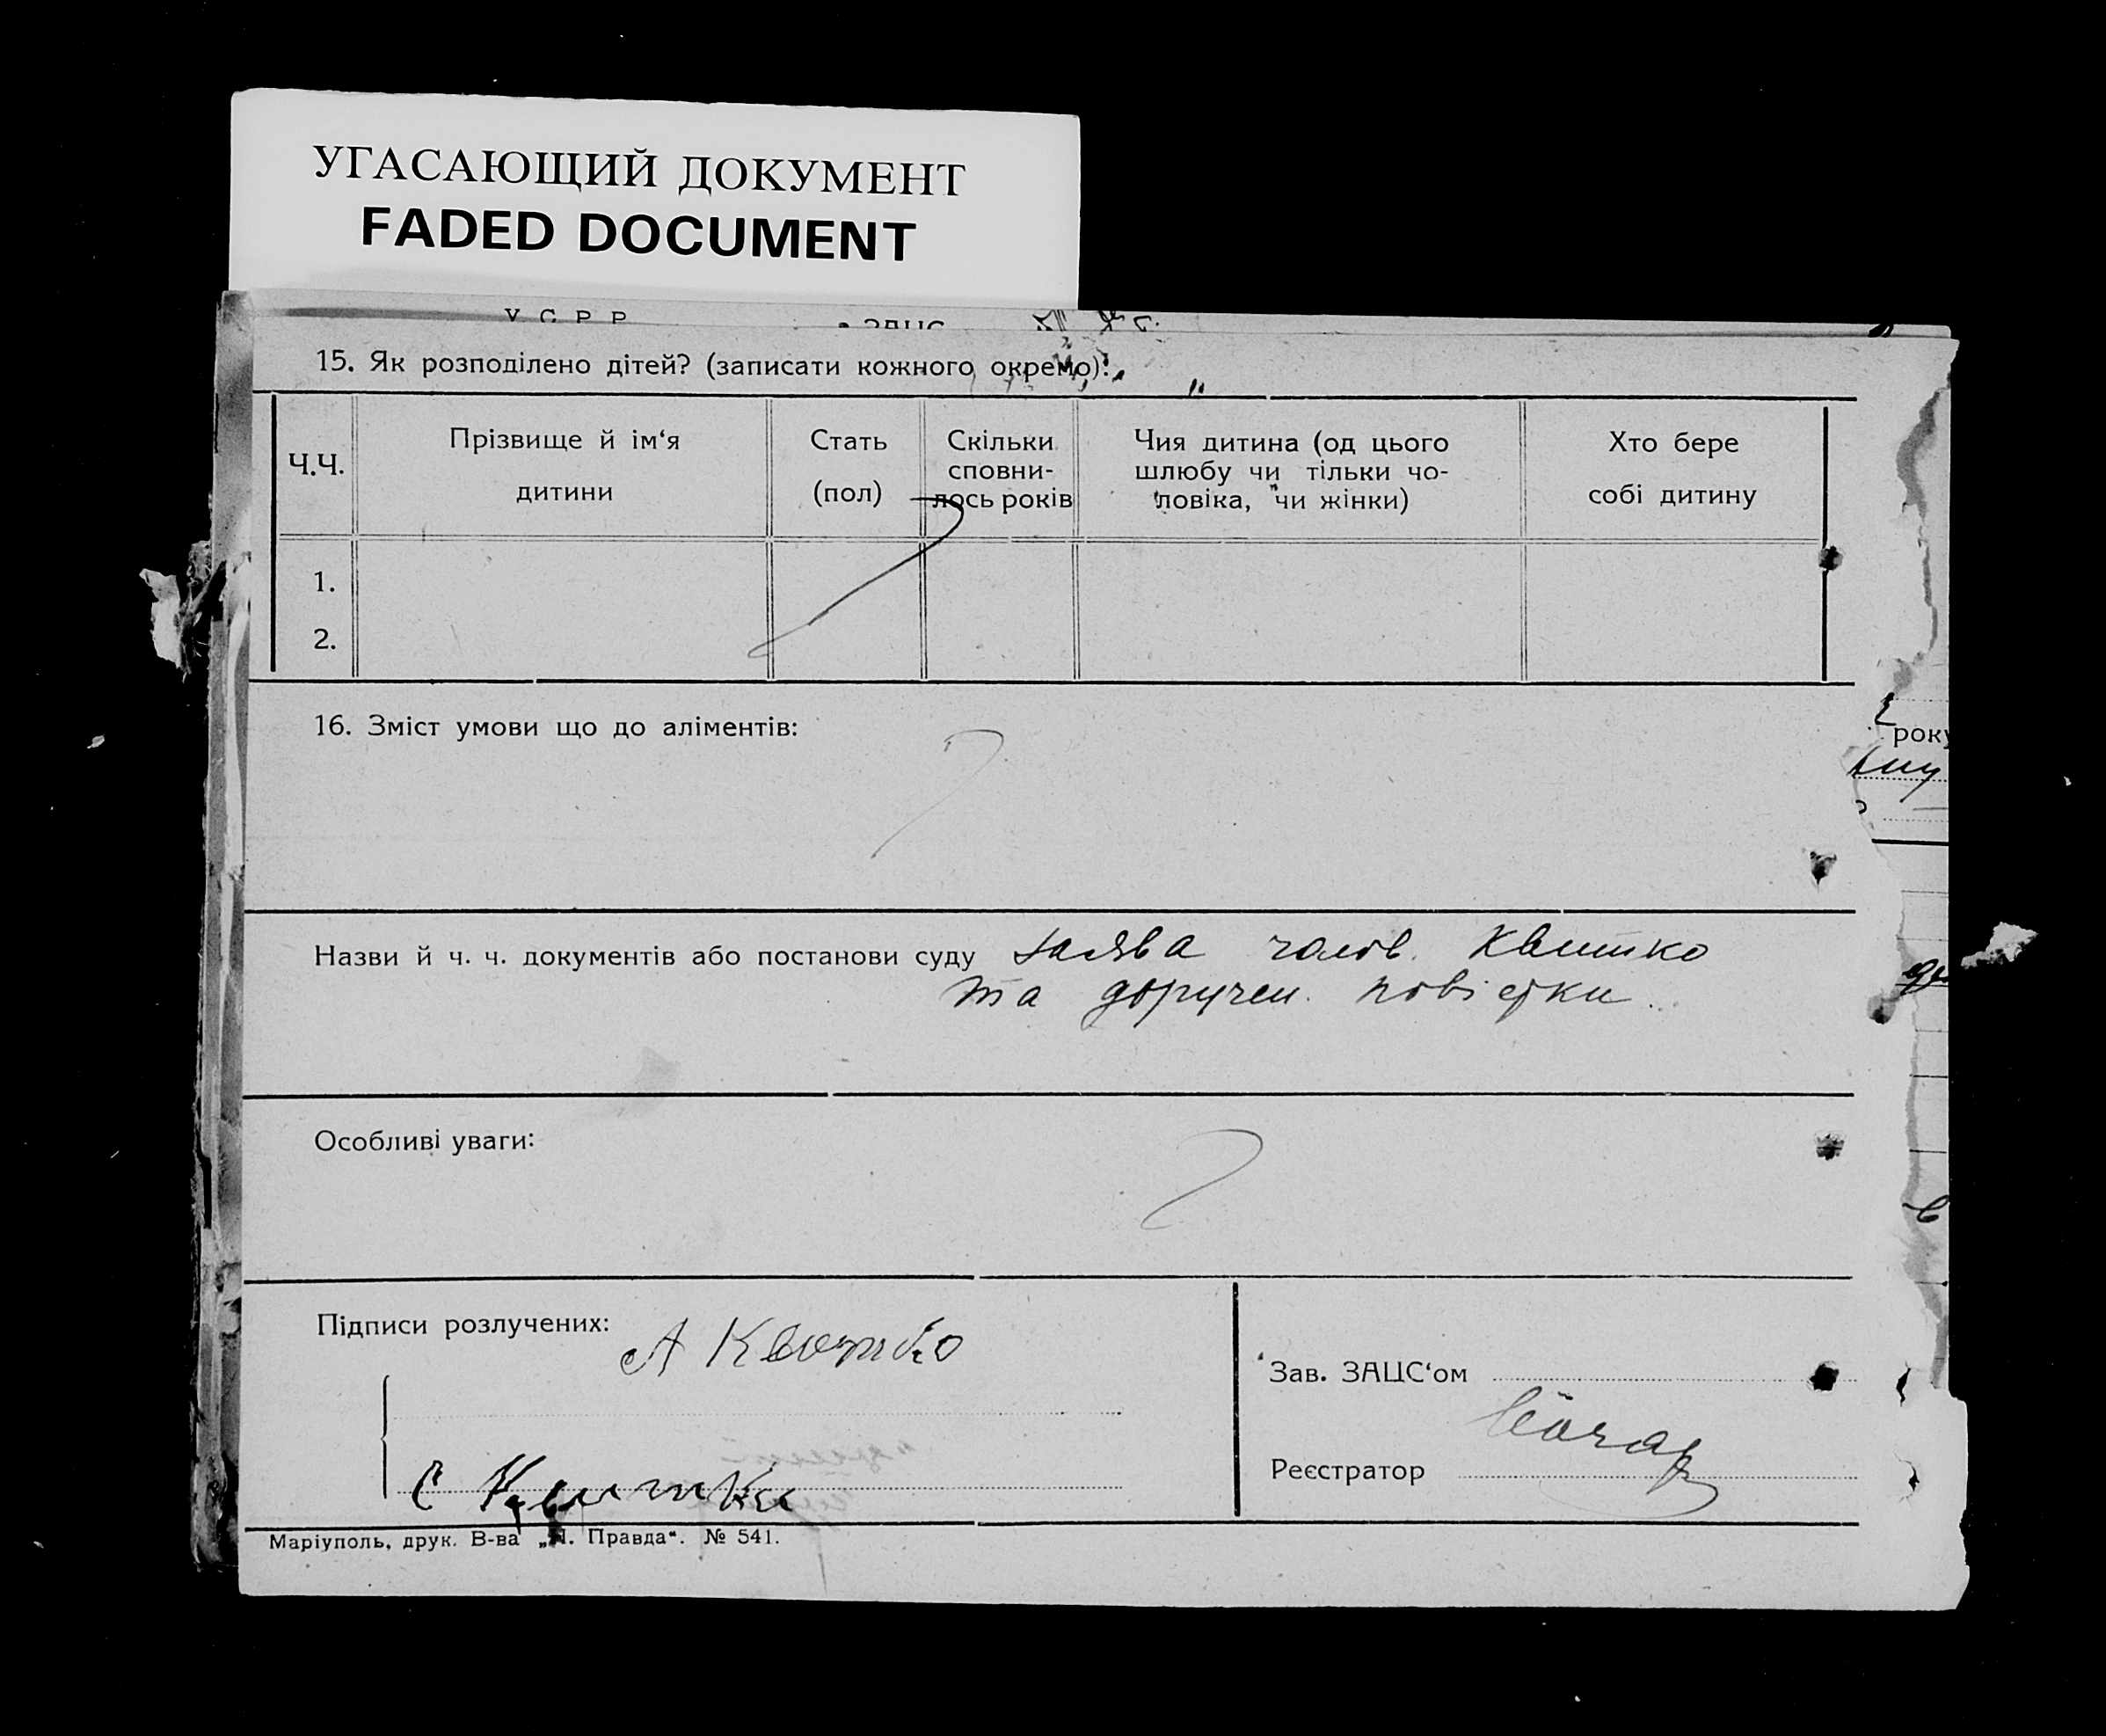 УГАСАЮЩИЙ ДОКУМЕНТ
FADED DOCUMENT
У. С. Р. Р.
15. Як розподілено дітей? (записати кожного окремо):
Ч.Ч.
Прізвище й ім‘я
дитини
Стать
(пол)
Скільки
сповни-
лось років
Чия дитина (од цього
шлюбу чи тільки чо-
ловіка, чи жінки)
Хто бере
собі дитину
1.
2.
16. Зміст умови що до аліментів:
року
Назви й ч. ч. документів або постанови суду заява чолов. Квитко
та доручен. повістки
Особливі уваги:
Підписи розлучених:
А Квитко
С Квитки
Зав. ЗАЦС‘ом
Реєстратор
Маріуполь, друк. В-ва „П. Правда“. № 541.